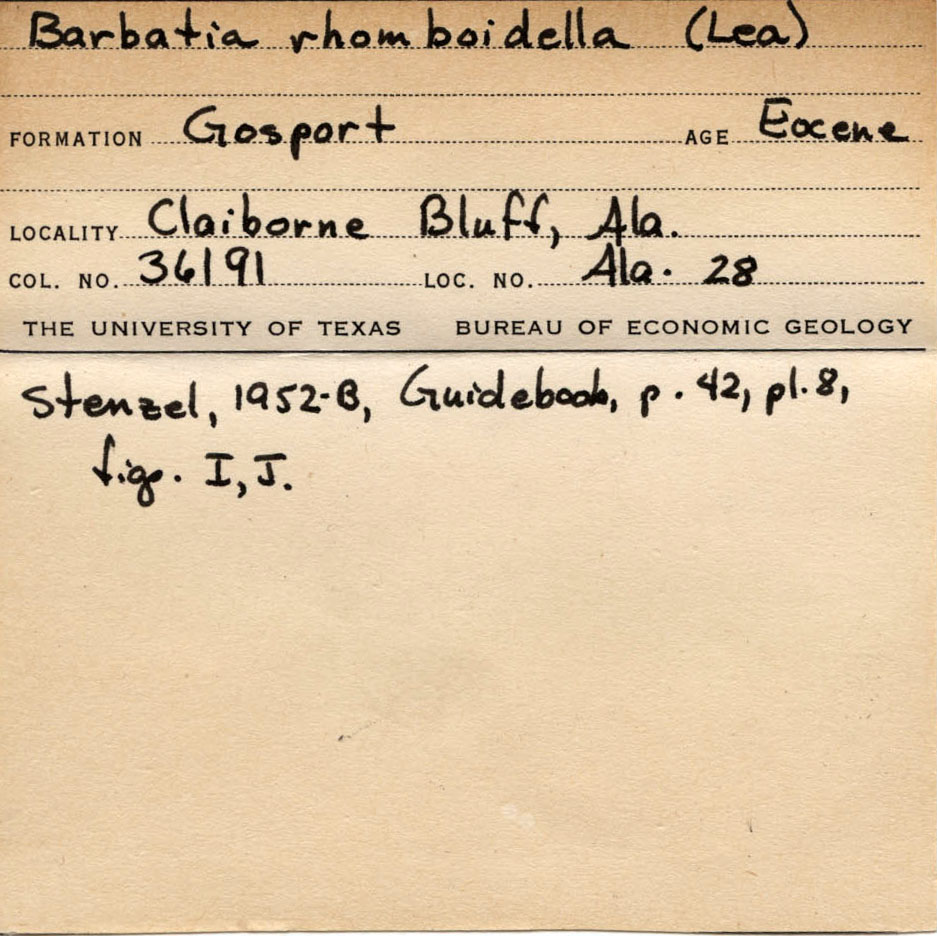 Barbatia rhomboidella (Lea)
FORMATION Gosport AGE Eocene
LOCALITY Claiborne Bluff, Ala.
COL. NO. 36191 LOC. NO. Ala. 28
THE UNIVERSITY OF TEXAS BUREAU OF ECONOMIC GEOLOGY
Stenzel, 1952-B, Guidebook, p. 42, pl. 8,
figs. I, J.